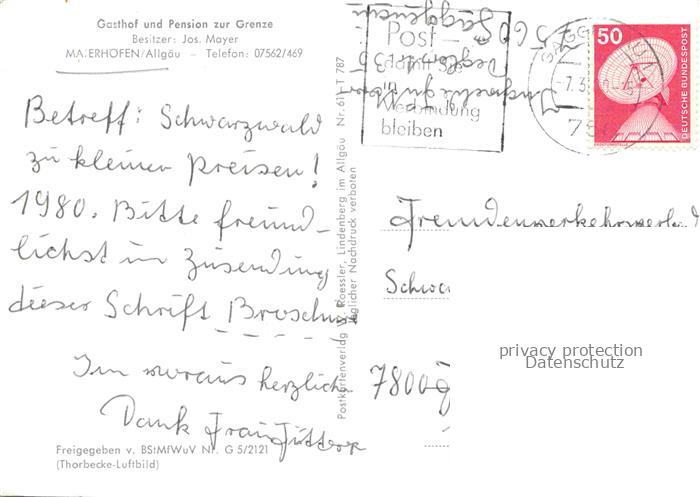 Gasthof und Pension zur Grenze
Besitzer: Jos. Mayer
MAIERHÖFEN/Allgäu - Telefon: 07562/469
Betreff: Schwarzwald
zu kleinen Preisen!
1980. Bitte freund-
lichst um Zusendung
dieser Schrift Broschüre
Im voraus herzlich
Dank
Freigegeben v. BStMfWuV Nr. G 5/2121
(Thorbecke-Luftbild)
Postkartenverlag Roessler, Lindenberg im Allgäu Nr. 61 T 787
Jeglicher Nachdruck verboten
Post
Verbindung
bleiben
50
DEUTSCHE BUNDESPOST
Fremdenverkehrsverband
7800
privacy protection
Datenschutz